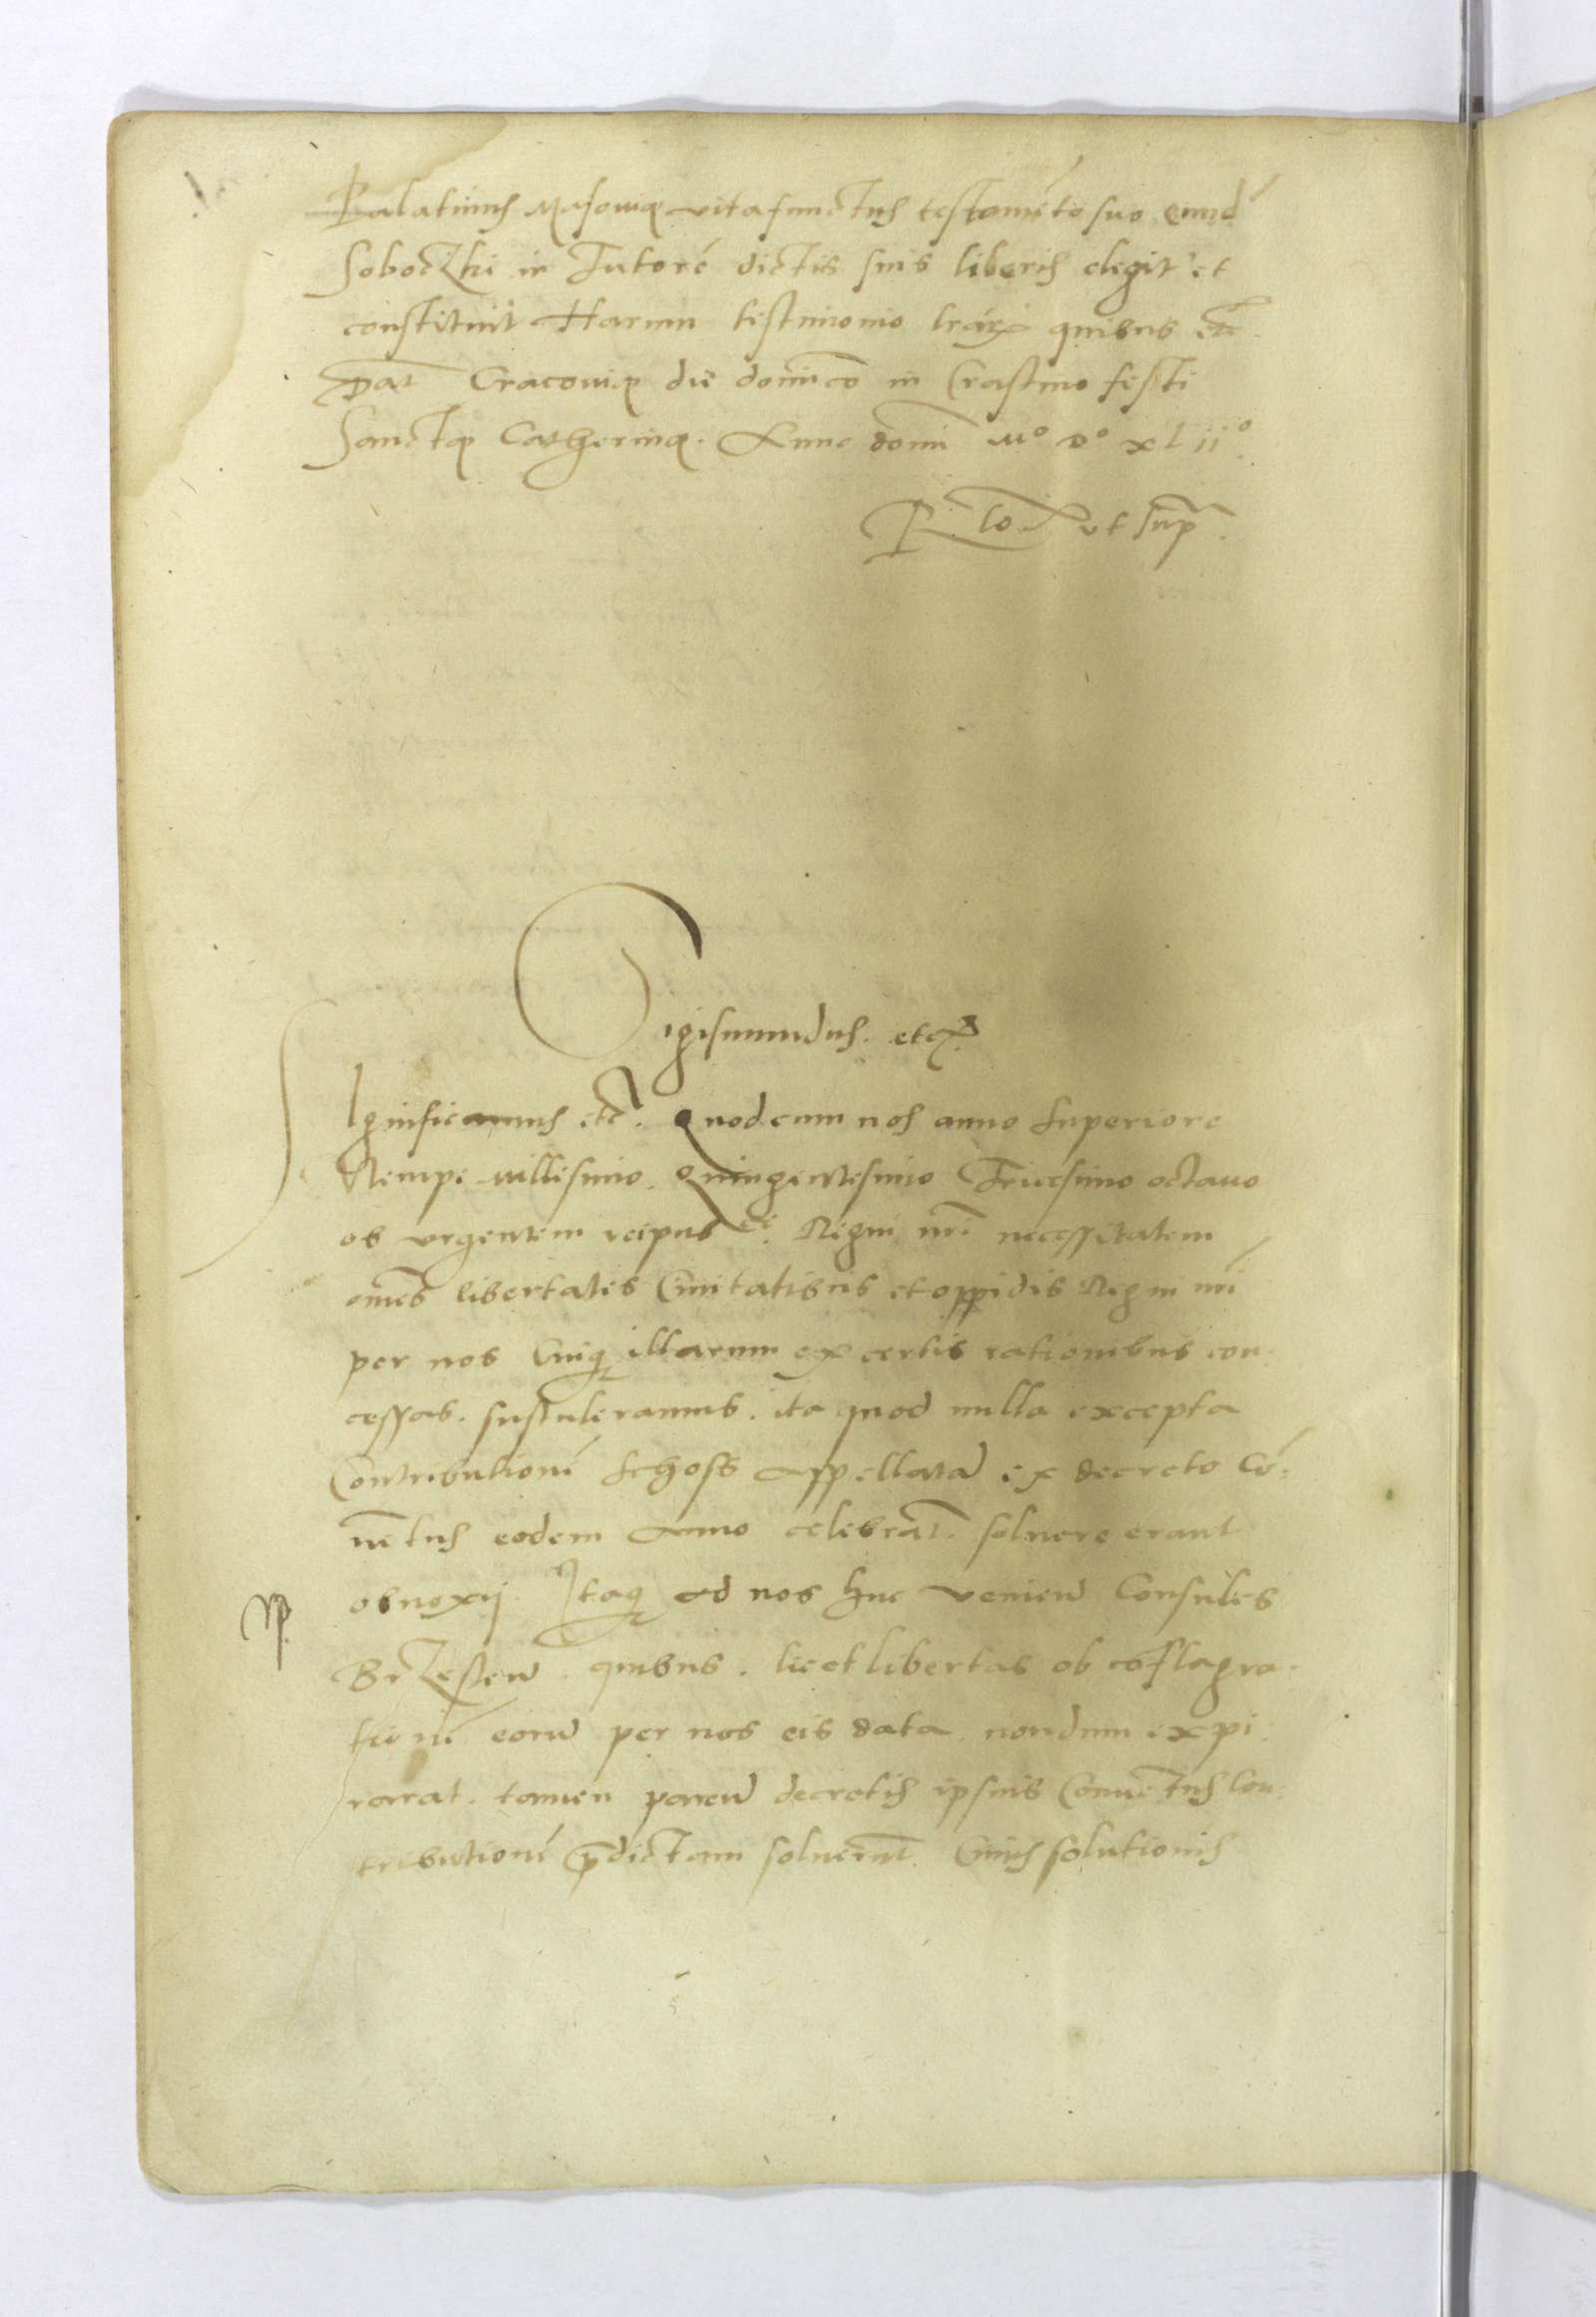 Palatinus Masouię vita functus testamēto suo eund̄
Soboczki in Tutorē dictis suis liberis elegit et
constituit Harum testimonio lrāꝝ quibus etc̄
Dat̄ Cracouię die dominico in Crastino festi
Sanctę Catherinę. Anno domī Mº Dº xl iiº.
ut sup̄.
Sigismundus. etcꝫ
Significamus etc̄. Quod cum nos anno superiore
Nempe millesimo. Quingentesimo Tricesimo octauo
ob vrgentem reipubcę. Regni nrī necessitatem
omēs libertates Ciuitatibus et oppidis Regni nrī
per nos Cuiqꝫ illarum ex certis rationibus con-
cessas. sustuleramus. ita quod nulla excepta
Contributionē schoss appellatā ex decreto Cō-
uētus eodem Anno celebrat̄. soluere erant
obnoxij. Itaqꝫ ad nos huc venien̄ Consules
Brzesten̄. quibus. licet libertas ob cōflagra-
tionē eorū per nos eis data nondum expi-
rarat. tamen paren̄ decretis ipsius Conuētus Con-
tributionē p̄dictam soluerūt. Cuius solutionis